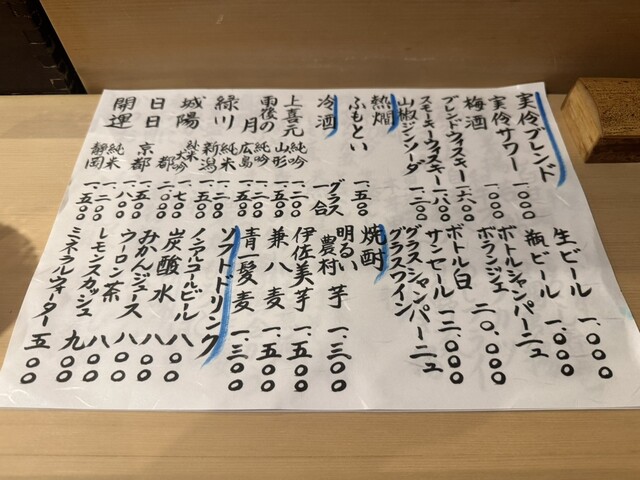 実伶ブレンド
実伶サワー 一、〇〇〇
梅酒 一、〇〇〇
ブレンドウィスキー 一、六〇〇
スモーキーウィスキー 一、八〇〇
山椒ジンソーダ
熱燗
ふもとい 一、五〇〇
冷酒
グラス 一合
上喜元 純吟 山形
雨後の月 純吟 広島
緑川 純米 新潟
城陽 純米大吟 京都
日日 京都
開運 純米 静岡
生ビール 一、〇〇〇
瓶ビール 一、〇〇〇
ボトルシャンパーニュ
ボランジェ 二〇、〇〇〇
ボトル白
サンセール 一二、〇〇〇
グラスシャンパーニュ
グラスワイン
焼酎
明るい農村 芋 一、三〇〇
伊佐美 芋 一、五〇〇
兼八 麦 一、五〇〇
青一髪 麦 一、三〇〇
ソフトドリンク
ノンアルコールビール 八〇〇
炭酸水 八〇〇
みかんジュース 八〇〇
ウーロン茶 八〇〇
レモンスカッシュ 九〇〇
ミネラルウォーター 五〇〇